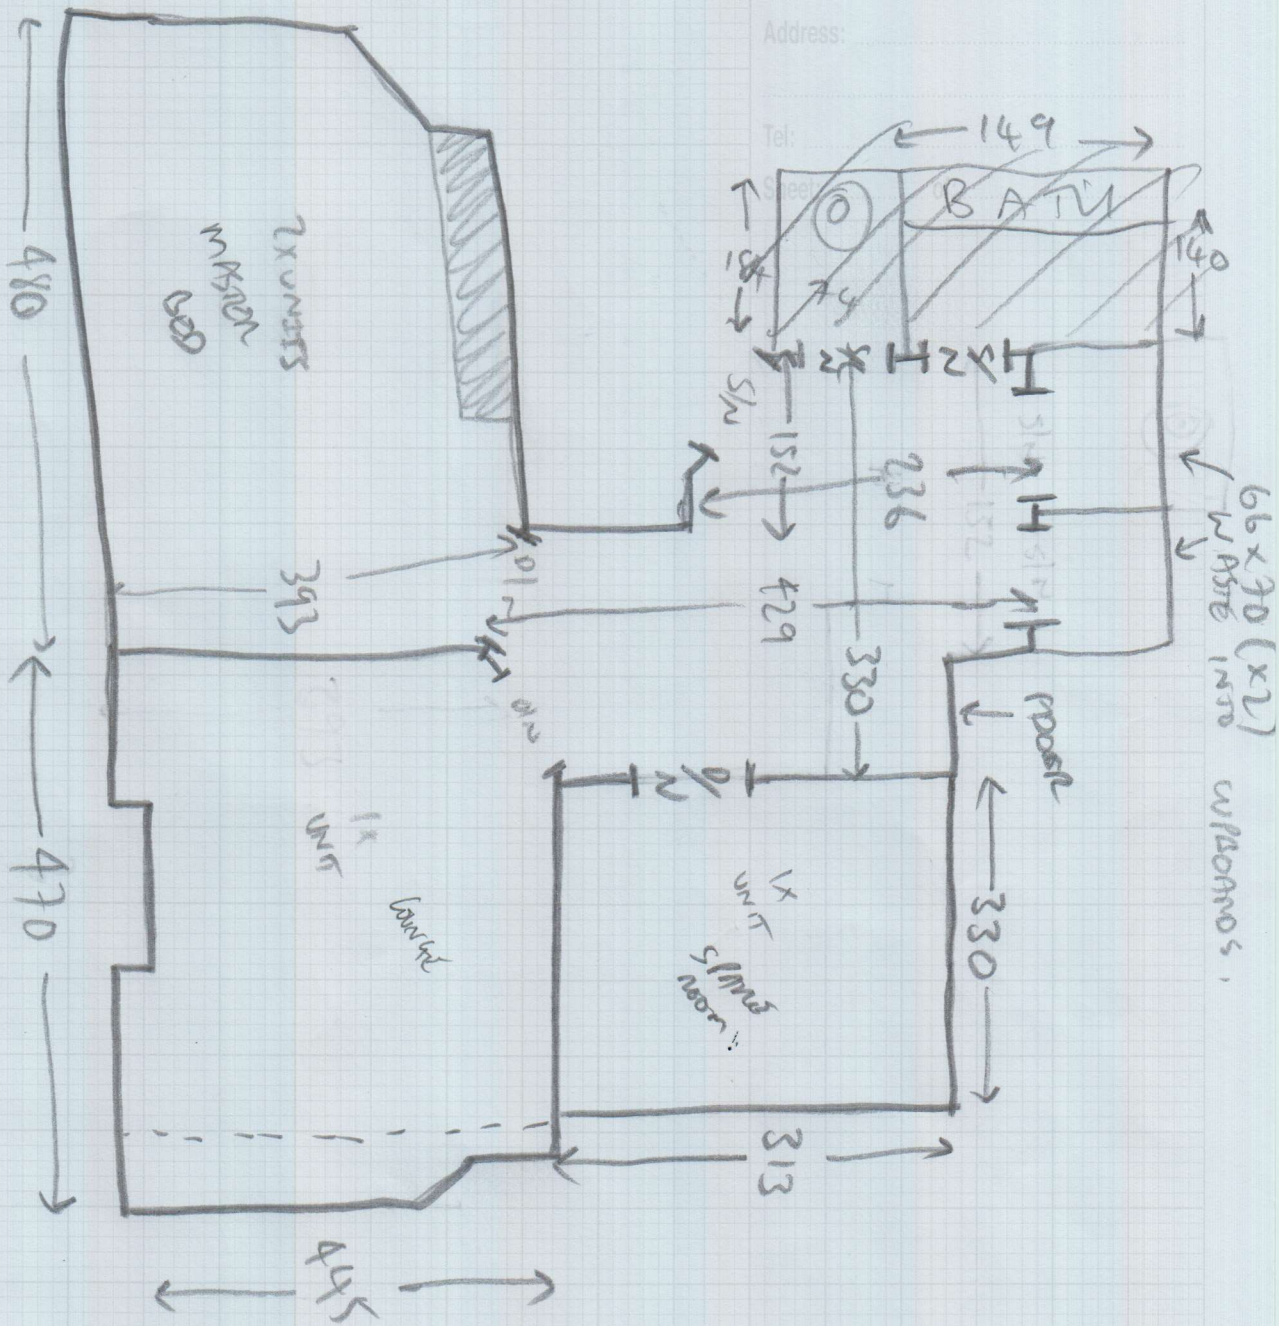 Address:
Tel:
Sheet:
149
BATH
140
134
74
S/N
S/N
S/N
152
236
66 x 70 (x2)
WASTE INTO
CUPBOARDS.
480
2X UNITS
MASTER
BED
393
D/N
429
330
D/N
D/N
470
1X
UNIT
LOUNGE
1X
UNIT
SPARE
ROOM
330
313
445